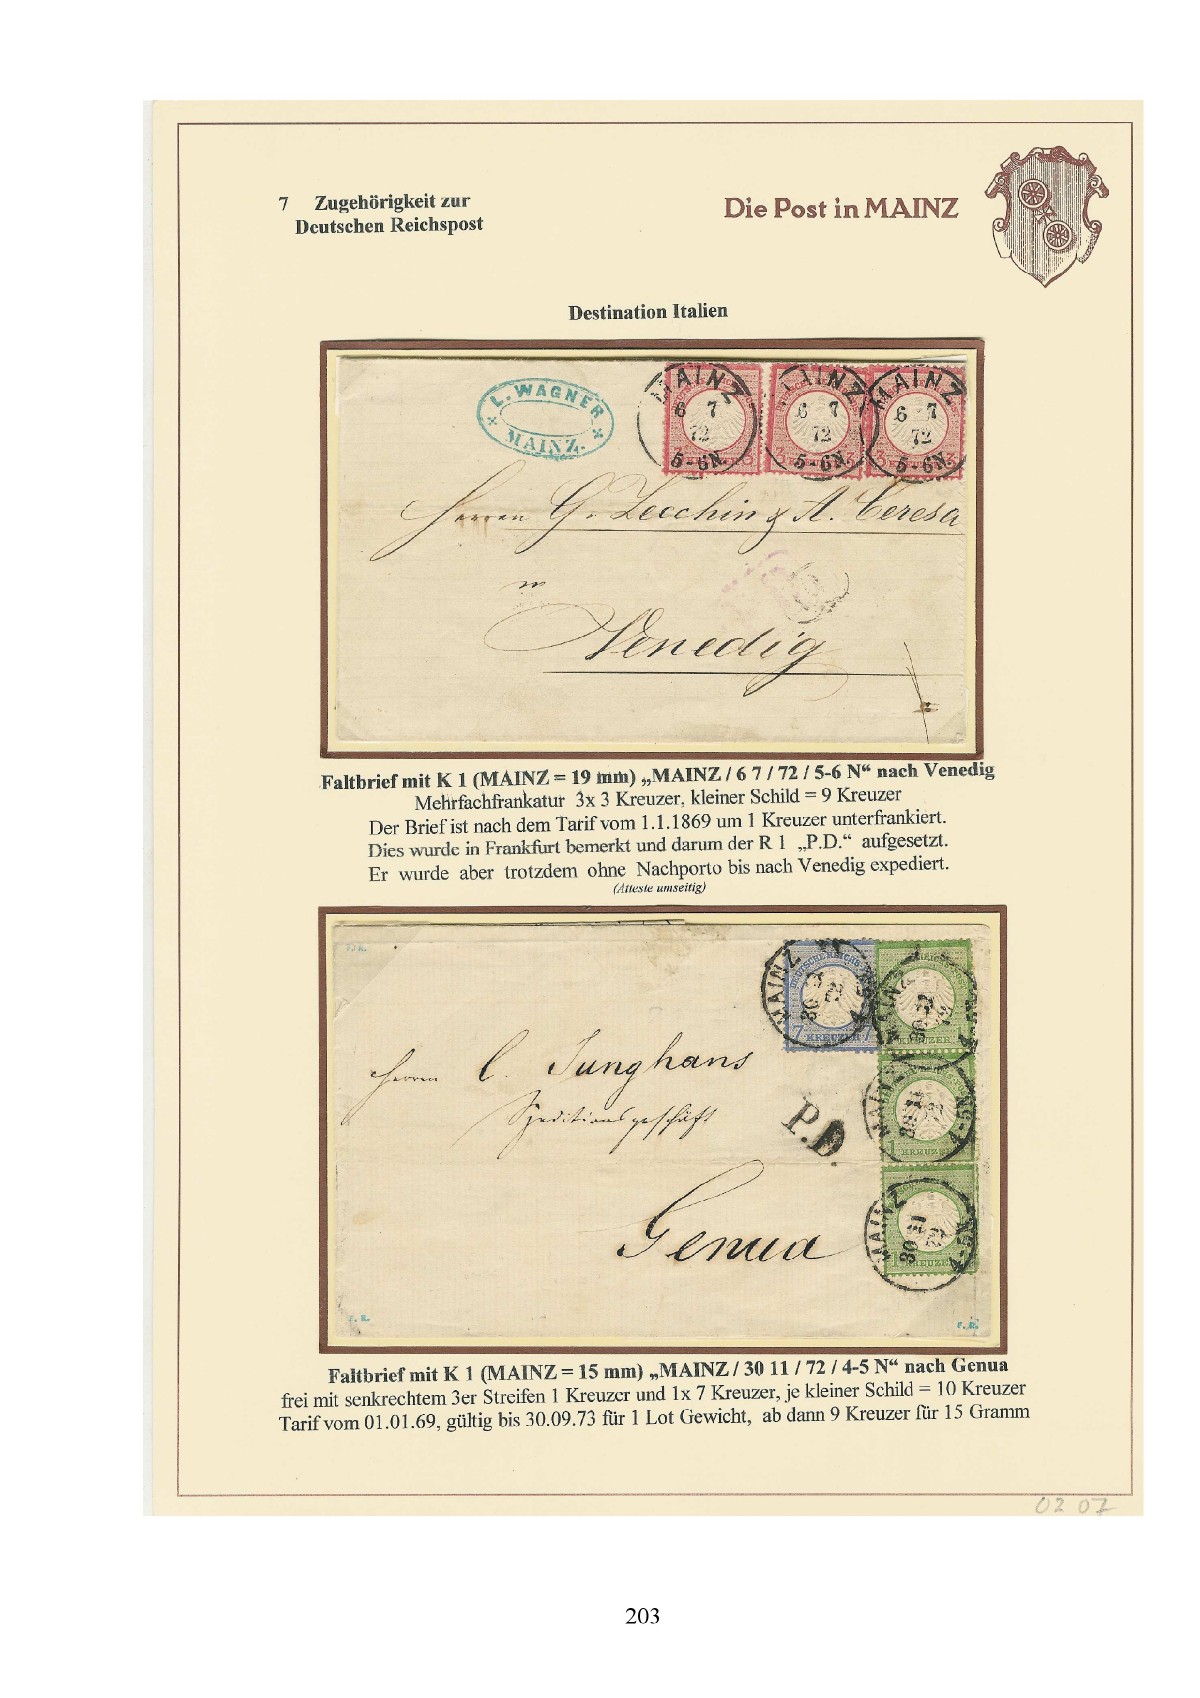 7 Zugehörigkeit zur
Deutschen Reichspost
Die Post in MAINZ
Destination Italien
L. WAGNER
MAINZ.
MAINZ
6 7
72
5-6N.
MAINZ
6 7
72
5-6N.
MAINZ
6 7
72
5-6N.
Herren G. Zecchin & A. Ceresa
in
Venedig
Faltbrief mit K 1 (MAINZ = 19 mm) „MAINZ / 6 7 / 72 / 5-6 N“ nach Venedig
Mehrfachfrankatur 3x 3 Kreuzer, kleiner Schild = 9 Kreuzer
Der Brief ist nach dem Tarif vom 1.1.1869 um 1 Kreuzer unterfrankiert.
Dies wurde in Frankfurt bemerkt und darum der R 1 „P.D.“ aufgesetzt.
Er wurde aber trotzdem ohne Nachporto bis nach Venedig expediert.
(Atteste umseitig)
MAINZ
7 KREUZER 7
KREUZER
Herrn C. Junghans
Speditionsgeschäft
P.D.
MAINZ
30 11
4-5N
1 KREUZER
Genua
MAINZ
30 11
72
4-5N
KREUZER
Faltbrief mit K 1 (MAINZ = 15 mm) „MAINZ / 30 11 / 72 / 4-5 N“ nach Genua
frei mit senkrechtem 3er Streifen 1 Kreuzer und 1x 7 Kreuzer, je kleiner Schild = 10 Kreuzer
Tarif vom 01.01.69, gültig bis 30.09.73 für 1 Lot Gewicht, ab dann 9 Kreuzer für 15 Gramm
02 07
203